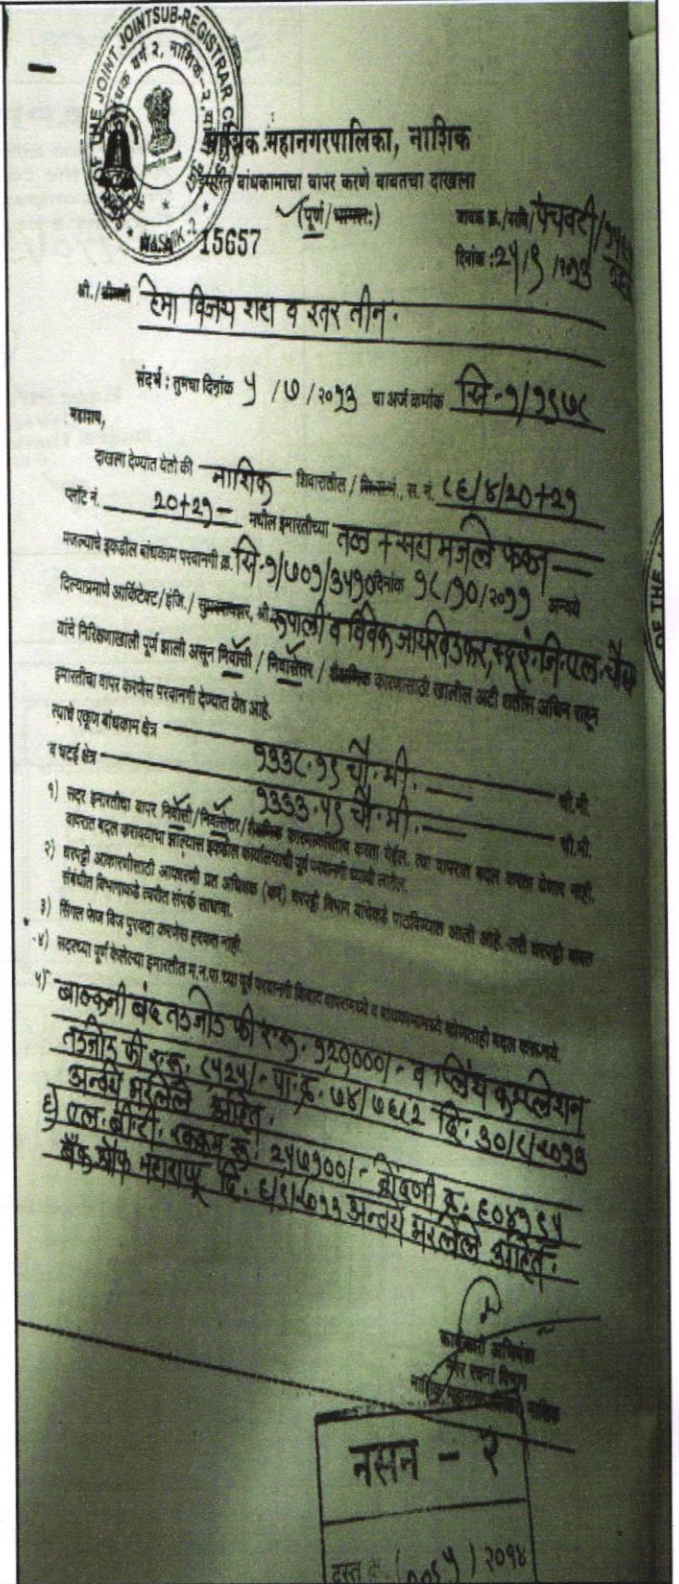 OF THE JOINT JOINTSUB-REGISTRAR CLASS
वर्ग २, नाशिक-२
NASIK-2
नाशिक महानगरपालिका, नाशिक
इमारत बांधकामाचा वापर करणे बाबतचा दाखला
(पूर्ण/भागशः)
15657
जावक क्र./नरवि/पंचवटी/
दिनांक :
श्री./श्रीमती हेमा विजय शहा व इतर तीन.
संदर्भ : तुमचा दिनांक ५/७/२०१३ चा अर्ज क्रमांक सि-१/१९७८
महाशय,
दाखला देण्यात येतो की नाशिक शिवारातील / सि.स.नं., स. नं. ८६/४/२०+२१
प्लॉट नं. २०+२१ मधील इमारतीच्या तळ + सहा मजले फक्त
मजल्याचे इकडील बांधकाम परवानगी क्र. सि-१/७०१/३५१० दिनांक १८/१०/२०११ अन्वये
दिल्याप्रमाणे आर्किटेक्ट/इंजि./ सुपरवायझर, श्री. रूपाली व विवेक जायखेडकर, स्ट्र.इं.जि.एल. चौधरी
यांचे निरिक्षणाखाली पूर्ण झाली असून निवासी / निवासेत्तर / शैक्षणिक कारणासाठी खालील अटी शर्तीस अधिन राहून
इमारतीचा वापर करणेस परवानगी देण्यात येत आहे.
त्याचे एकूण बांधकाम क्षेत्र १३३८.१९ चौ.मी. चौ.मी.
व चटई क्षेत्र १३३३.५९ चौ.मी. चौ.मी.
१) सदर इमारतीचा वापर निवासी/निवासेत्तर/शैक्षणिक कारणाकरिताच करता येईल. त्या वापरात बदल करता येणार नाही.
वापरात बदल करावयाचा झाल्यास इकडील कार्यालयाची पूर्व परवानगी घ्यावी लागेल.
२) घरपट्टी आकारणीसाठी आकारणी प्रत अधिक्षक (कर) घरपट्टी विभाग यांचेकडे पाठविण्यात आली आहे. तरी घरपट्टी बाबत
संबंधीत विभागाकडे त्वरीत संपर्क साधावा.
३) सिंगल फेज विज पुरवठा करणेस हरकत नाही.
४) सदरच्या पूर्ण केलेल्या इमारतीत म.न.पा.च्या पूर्व परवानगी शिवाय वापरामध्ये व बांधकामामध्ये कोणताही बदल करू नये.
५) बाल्कनी बंद तडजोड फी र.रु. १२००००/- व प्लिंथ कम्प्लिशन
तडजोड फी र.रु. ८५२५/- पा.क्र. ७४/७६८२ दि. ३०/८/२०१३
अन्वये भरलेले आहेत.
६) एल.बी.टी. रक्कम रु. २५७१००/- नोंदणी क्र. ६०४१९५
बँक ऑफ महाराष्ट्र दि. ६/९/२०१३ अन्वये भरलेले आहेत.
कार्यकारी अभियंता
नगर रचना विभाग
नाशिक महानगरपालिका, नाशिक
नसन - २
दस्त क्र. ( ) २०१४
OF THE